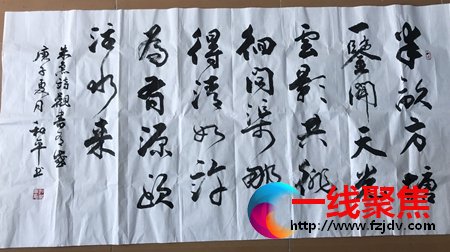 半畝方塘
一鑒開天光
雲影共徘
徊問渠那
得清如許
為有源頭
活水来
朱熹詩觀書有感
庚子夏月 和平書
一线聚焦
http://www.fzjdv.com